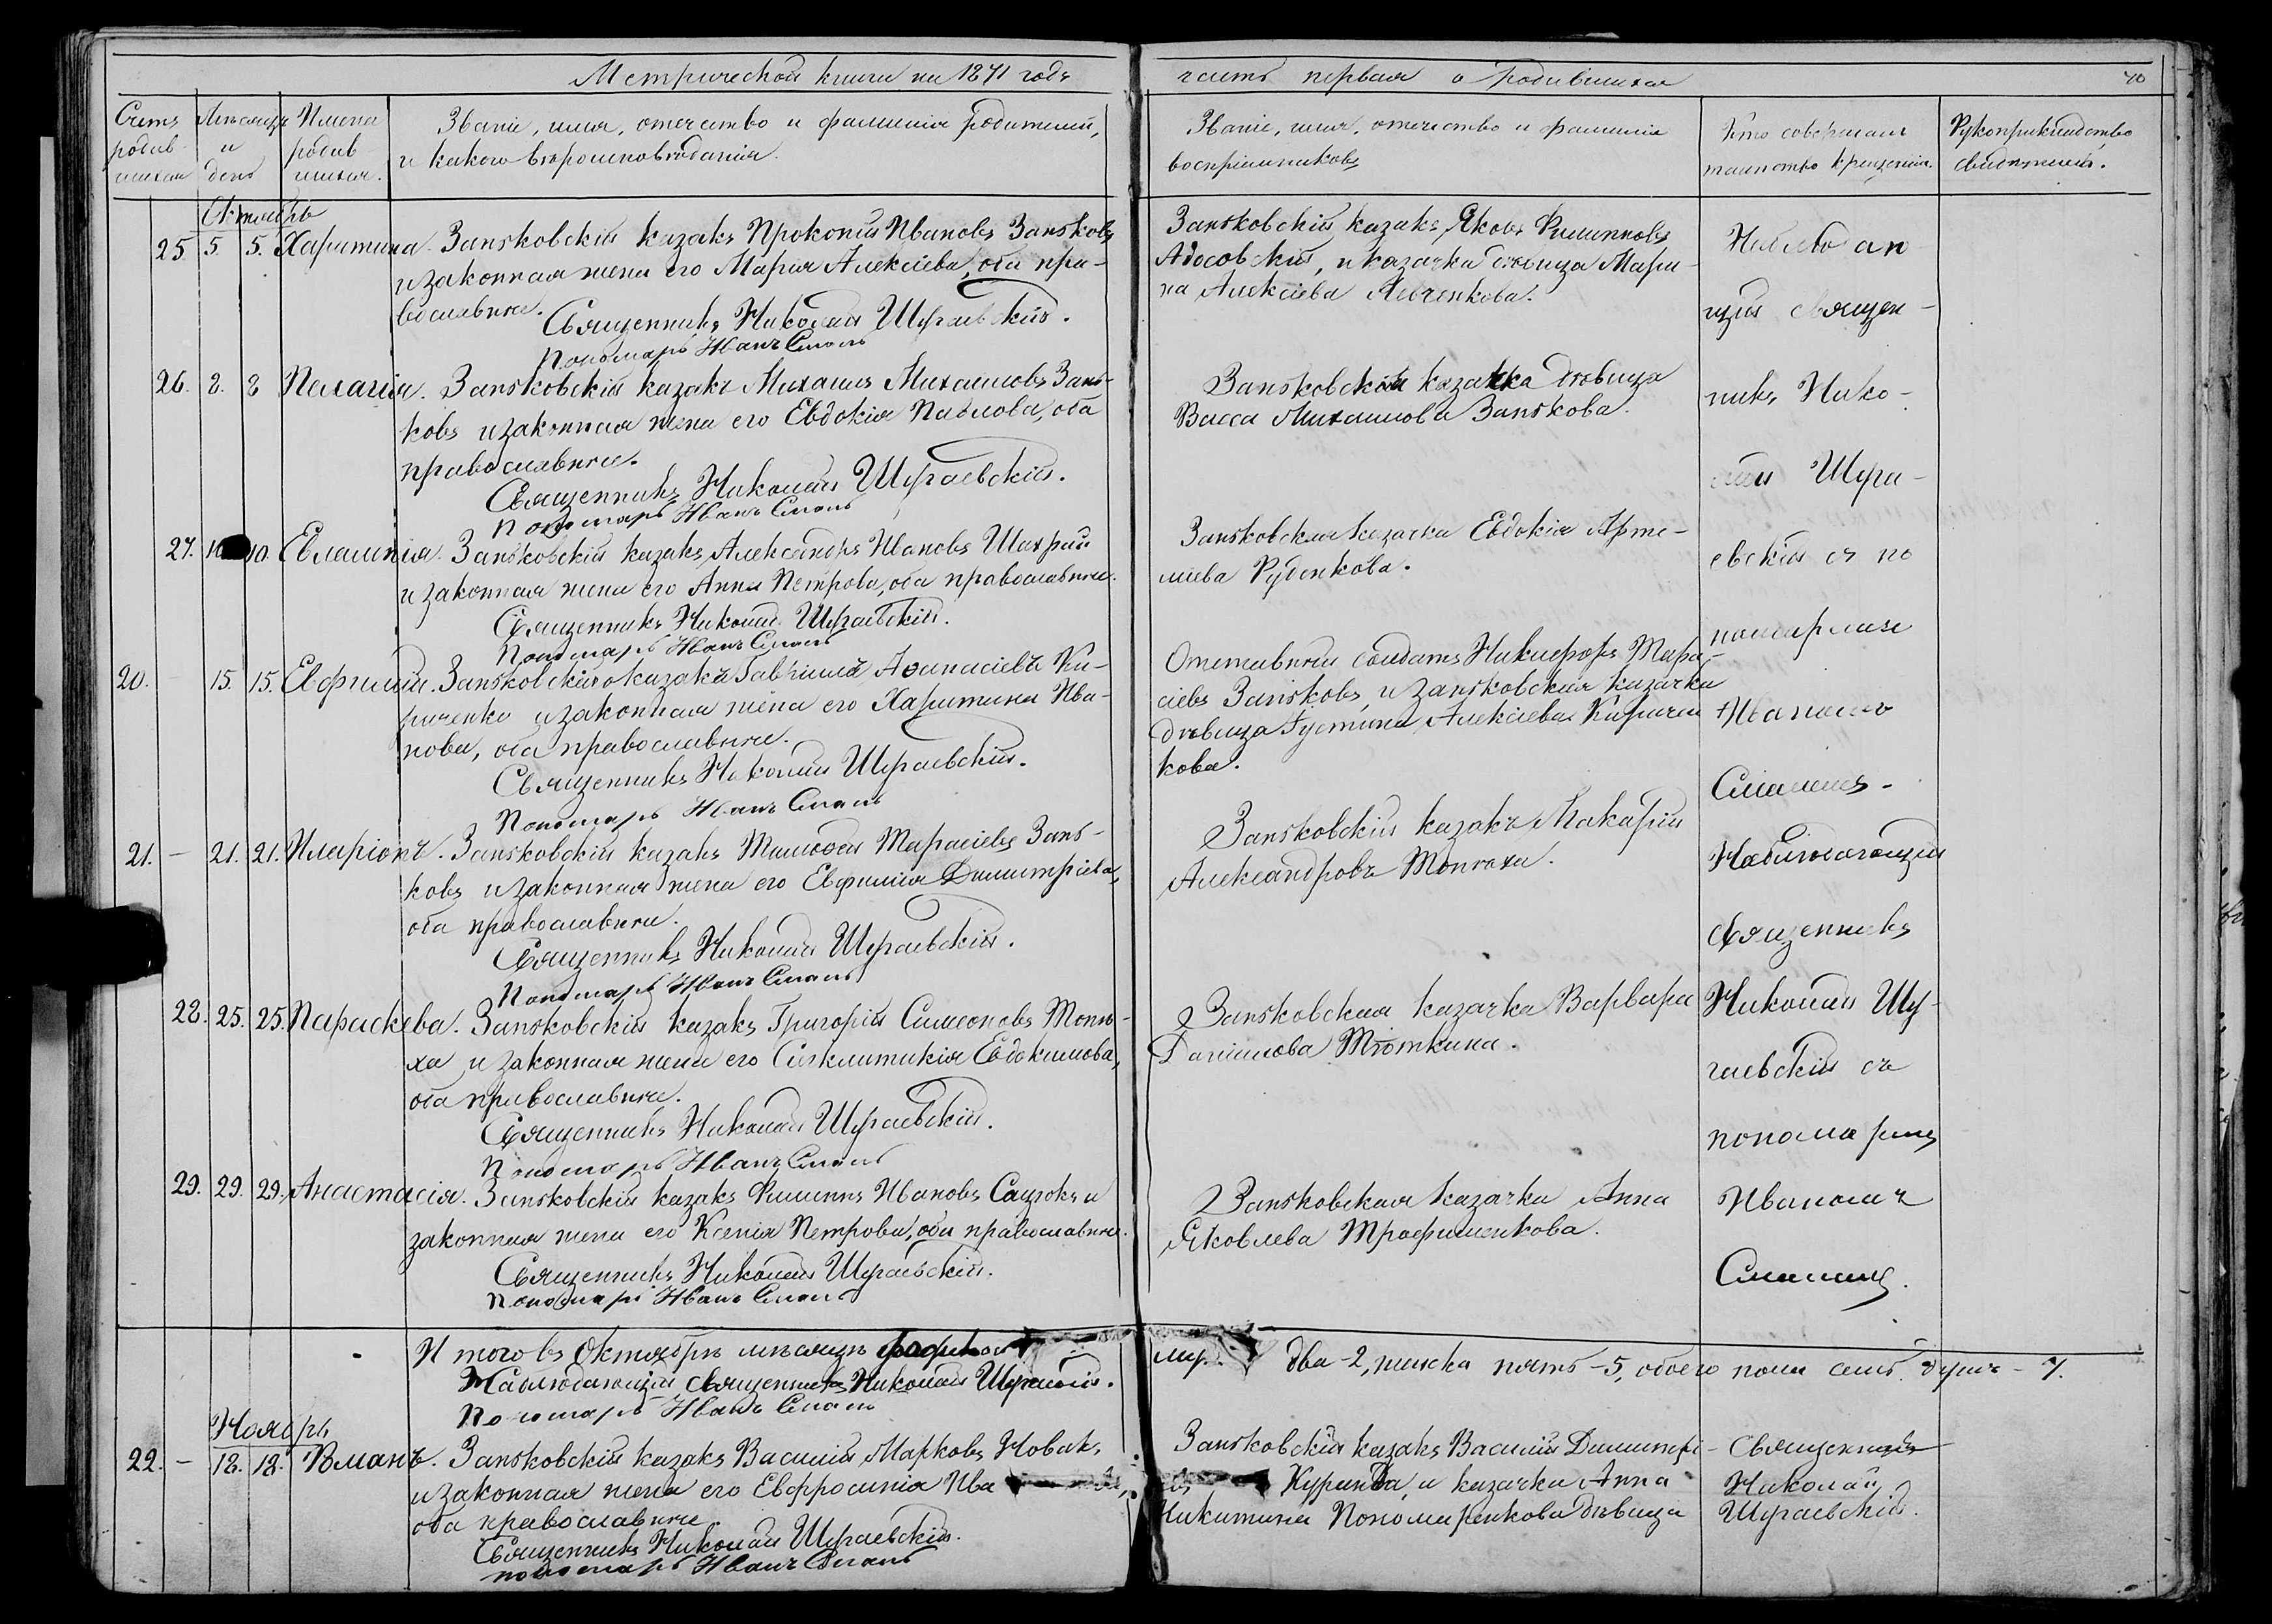 Метрической книги на 1871 годъ
часть первая о родившихся
70
Счетъ родив- шихся
Мѣсяцъ и день
Имена родив- шихся.
Званіе, имя, отчество и фамилія родителей,
и какого вѣроисповѣданія.
Званіе, имя, отчество и фамилія
воспріемниковъ
Кто совершалъ
таинство крещенія.
Рукоприкладство
свидѣтелей.
Октябрь
25 5. 5. Харитина. Заньковскій казакъ Прокопій Ивановъ Заньковъ
и законная жена его Марія Алексіева, оба пра-
вославные.
Священникъ Николай Шугаевскій.
Пономарь Иванъ Смаль
Заньковскій казакъ Яковъ Филипповъ
Адосовскій, и казачка дѣвица Мари-
на Алексіева Левченкова.
26. 8. 8 Пелагія. Заньковскій казакъ Михаилъ Михаиловъ Зань-
ковъ и законная жена его Евдокія Павлова, оба
православные.
Священникъ Николай Шугаевскій.
Пономарь Иванъ Смаль
Заньковская казачка дѣвица
Васса Михаилова Занькова.
27. 10 10. Евлампія. Заньковскій казакъ Александръ Ивановъ Шахрай
и законная жена его Анна Петрова, оба православные.
Священникъ Николай Шугаевскій.
Пономарь Иванъ Смаль
Заньковская казачка Евдокія Арте-
міева Рубенкова.
20. 15. 15. Евфимій. Заньковскій казакъ Гавріилъ Аѳанасіевъ Ки-
риченко и законная жена его Харитина Ива-
нова, оба православные.
Священникъ Николай Шугаевскій.
Пономарь Иванъ Смаль
Отставный солдатъ Никифоръ Тара-
сіевъ Заньковъ, и заньковская казачка
дѣвица Іустина Алексіева Киричен
кова.
21. — 21. 21. Иларіонъ. Заньковскій казакъ Тимоѳей Тарасіевъ Зань-
ковъ и законная жена его Евфимія Димитріева,
оба православные.
Священникъ Николай Шугаевскій.
Пономарь Иванъ Смаль
Заньковскій казакъ Макарій
Александровъ Топчаха.
28. 25. 25. Параскева. Заньковскій казакъ Григорій Симеоновъ Топч-
ха и законная жена его Сигклитикія Евдокимова,
оба православные.
Священникъ Николай Шугаевскій.
Пономарь Иванъ Смаль
Заньковская казачка Варвара
Даніилова Тюткина.
29. 29. 29. Анастасія. Заньковскій казакъ Филиппъ Ивановъ Сацюкъ и
законная жена его Ксенія Петрова, оба православные.
Священникъ Николай Шугаевскій.
Пономарь Иванъ Смаль
Заньковская казачка Анна
Яковлева Трофименкова.
Наблюдаю-
щій священ-
никъ Нико-
лай Шуга-
евскій съ по
номаремъ
Иваномъ
Смалемъ.
Наблюдающій
Священникъ
Николай Шу-
гаевскій съ
пономаремъ
Иваномъ
Смалемъ.
Итого въ Октябрѣ мѣсяцѣ
два-2, женска пять-5, обоего пола семь душъ-7.
Наблюдающій Священникъ Николай Шугаевскій.
Пономарь Иванъ Смаль
Ноябрь
22. — 18. 18. Романъ. Заньковскій казакъ Василій Марковъ Новакъ
и законная жена его Евфросинія Ива
оба православные
Священникъ Николай Шугаевскій.
пономарь Иванъ Смаль
Заньковскій казакъ Василій Димитрі-
евъ Куринда, и казачка Анна
Никитина Пономаренкова дѣвица
Священникъ
Николай
Шугаевскій.